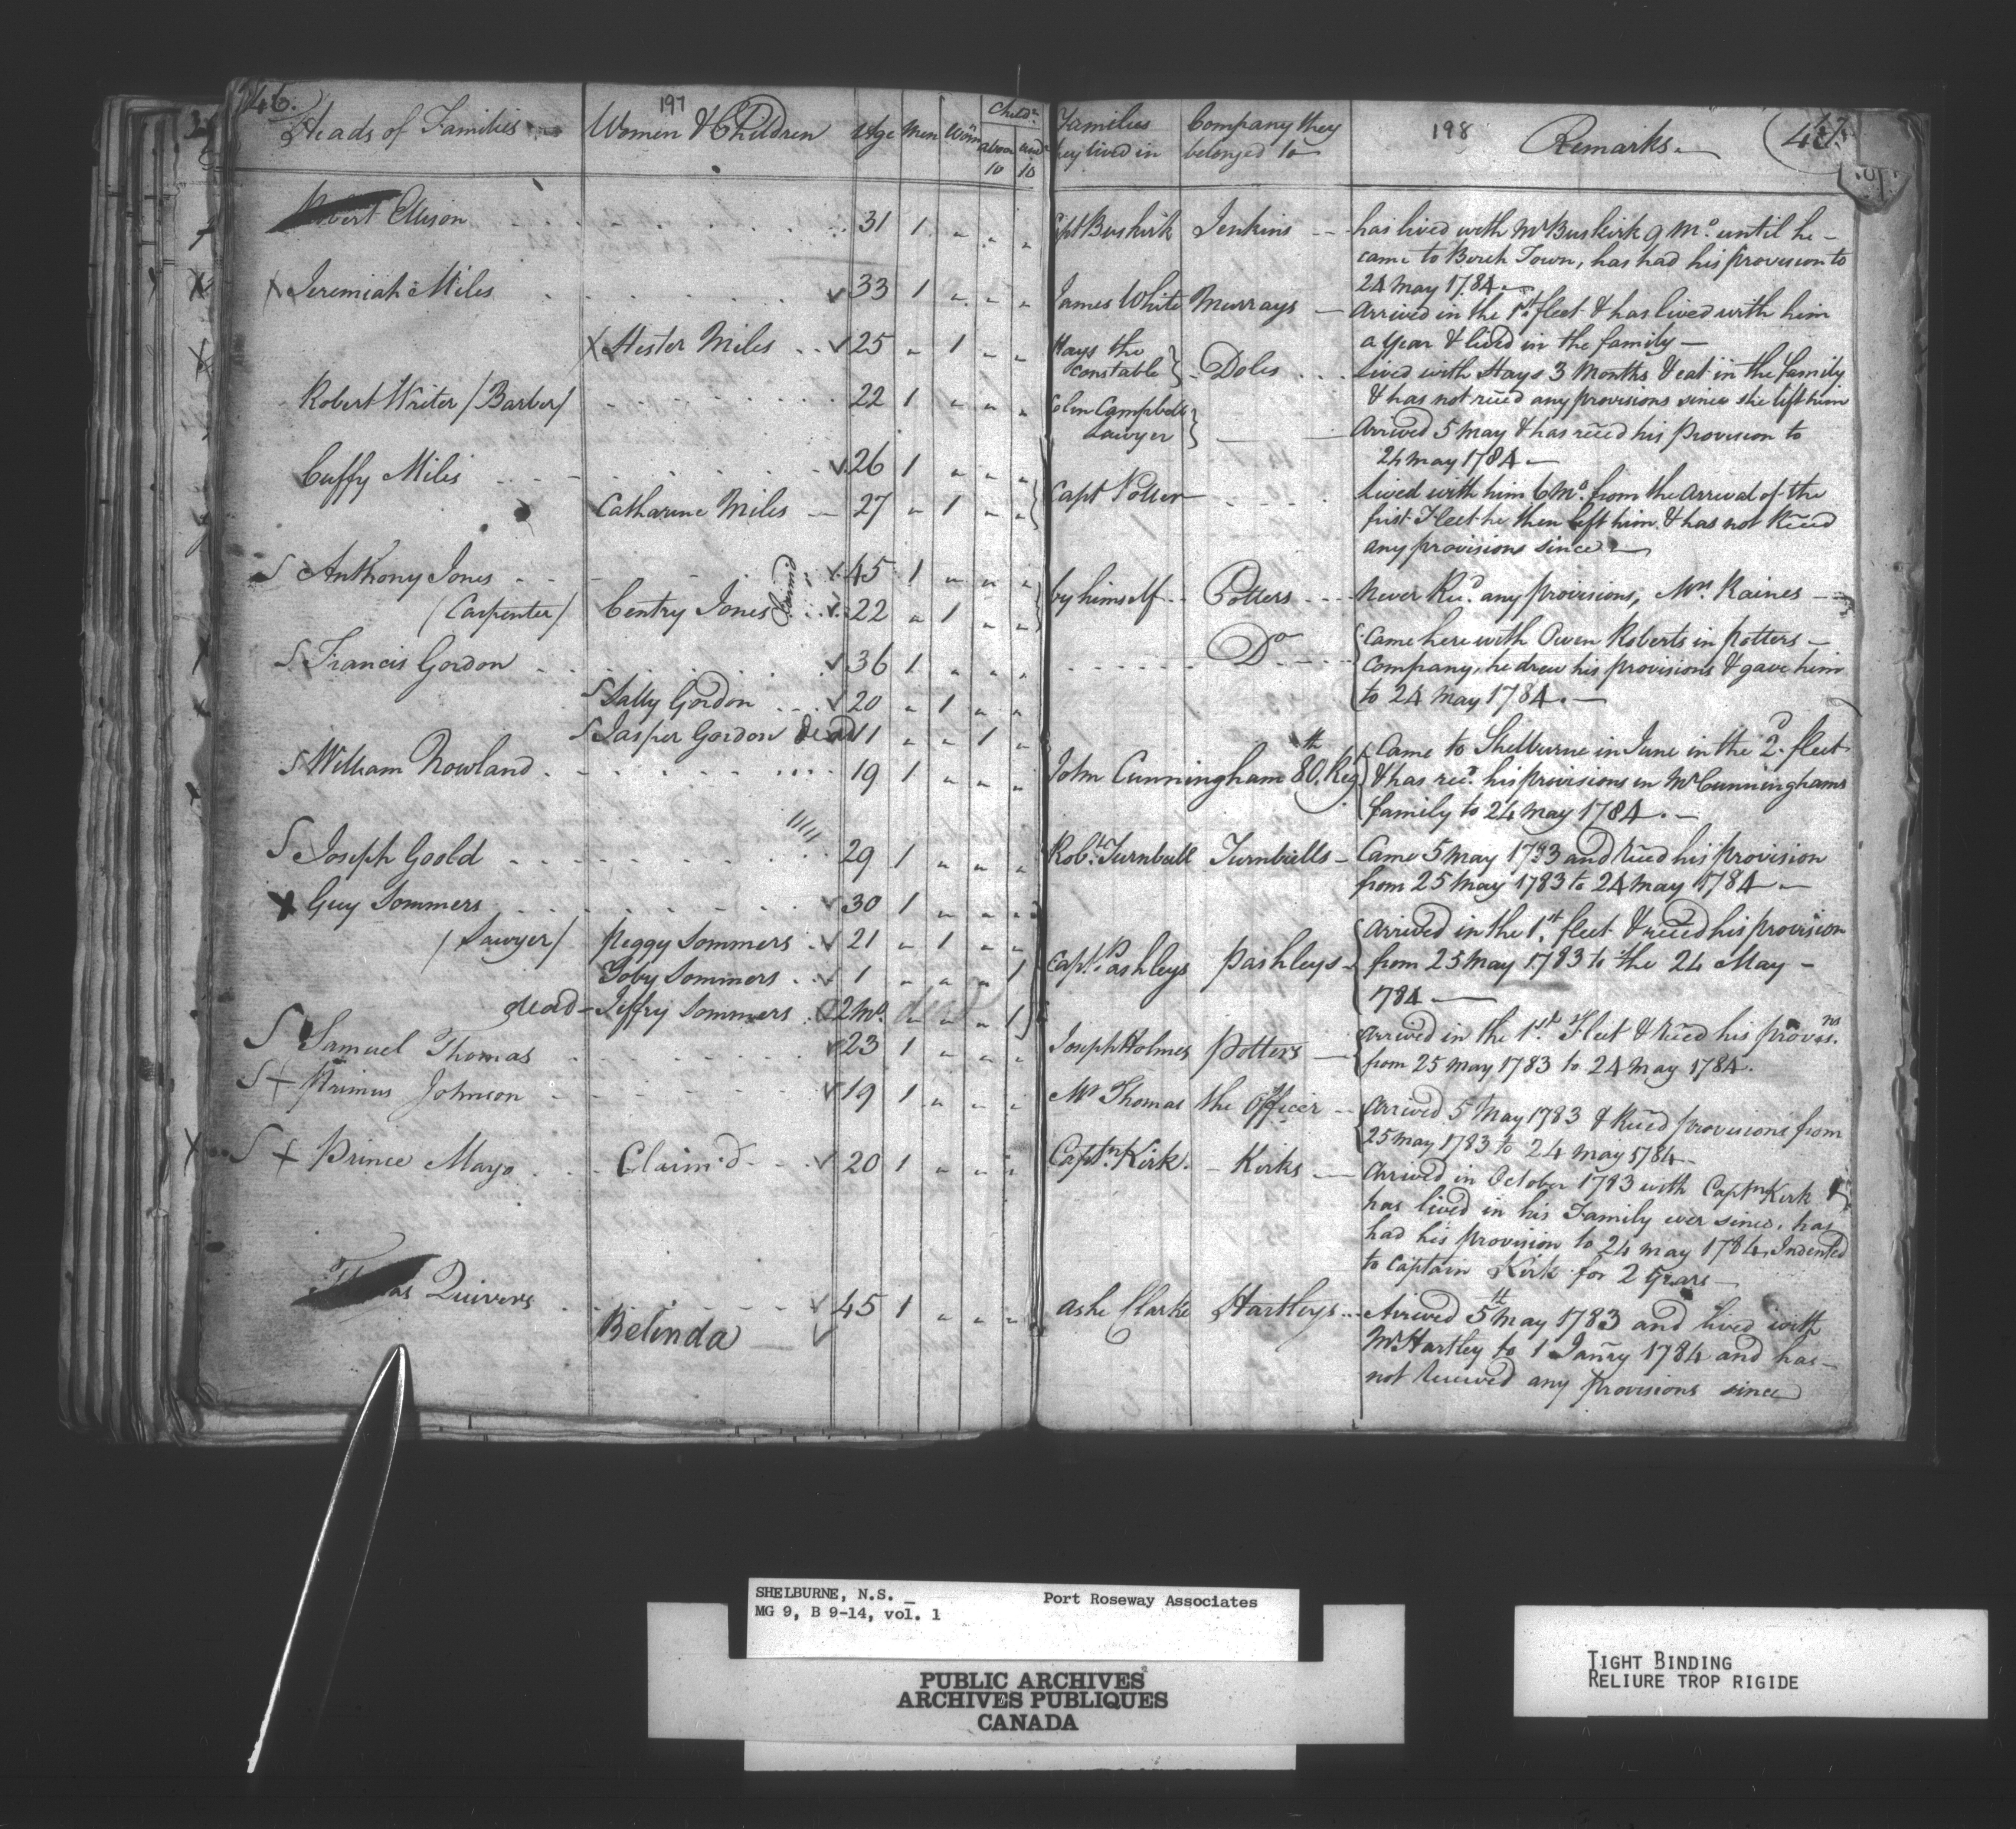 46.
197
Heads of Families
Women & Children
Age
Men
Wom
Childn
above 10
und 10
Robert Ellison 31 1
Jeremiah Miles 33 1
Hester Miles 25 1
Robert Writer / Barber / 22 1
Cuffy Miles 26 1
Catharine Miles 27 1
S Anthony Jones 45 1
/ Carpenter / Centry Jones Claimd 22 1
S Francis Gordon 36 1
S Sally Gordon 20 1
S Jasper Gordon dead 11 1
S William Rowland 19 1
S Joseph Goold 29 1
X Guy Sommers 30 1
/ Sawyer / Peggy Sommers 21 1
Toby Sommers 1 1
dead - Jeffry Sommers 2 Mo. dead 1
S Samuel Thomas 23 1
S + Primus Johnson 19 1
S + Prince Mayo Claim'd 20 1
Quivers 45 1
Belinda
Families
they lived in
Company they
belonged to
198
Remarks.
47.
Capt Buskirk Jenkins has lived with Mr Buskirk 9 Mo. until he
came to Birch Town, has had his provision to
24 May 1784
James White Murrays Arrived in the 1st fleet & has lived with him
a year & lived in the family
Hays the
constable } Doles lived with Hays 3 Months & eat in the family
& has not rec̃ed any provisions since she left him
Colin Campbell
Lawyer } Arrived 5 May & has rec̃ed his Provision to
24 May 1784
Capt Potter lived with him 6 Mo. from the Arrival of the
first Fleet he then left him & has not Rec̃ed
any provisions since
by himself Potters Never Recd. any provisions, Mr. Raines
Do Came here with Owen Roberts in Potters
Company, he drew his provisions & gave him
to 24 May 1784.
John Cunningham 80th. Reg Came to Shelburne in June in the 2d. fleet
& has recd. his provisions in Mr Cunninghams
family to 24 May 1784.
Robt. Turnbull Turnbulls Came 5 May 1783 and Rec̃ed his provision
from 25 May 1783 to 24 May 1784
Capt. Pashleys Pashleys Arrived in the 1st. fleet & rec̃eed his provision
from 25 May 1783 to the 24 May
1784
Joseph Holmes Potters Arrived in the 1st. Fleet & Rec̃ed his provisns.
from 25 May 1783 to 24 May 1784.
Mr Thomas the Officer Arrived 5 May 1783 & Rec̃ed provisions from
25 May 1783 to 24 May 1784
Captn. Kirk. Kirks Arrived in October 1783 with Captn Kirk &
has lived in his Family ever since, has
had his provision to 24 May 1784, Indented
to Captain Kirk for 2 Years
Ashe Clarke Hartleys Arrived 5th May 1783 and lived with
Mr Hartley to 1 Janry 1784 and has
not Received any Provisions since
SHELBURNE, N.S. _ Port Roseway Associates
MG 9, B 9-14, vol. 1
PUBLIC ARCHIVES
ARCHIVES PUBLIQUES
CANADA
TIGHT BINDING
RELIURE TROP RIGIDE